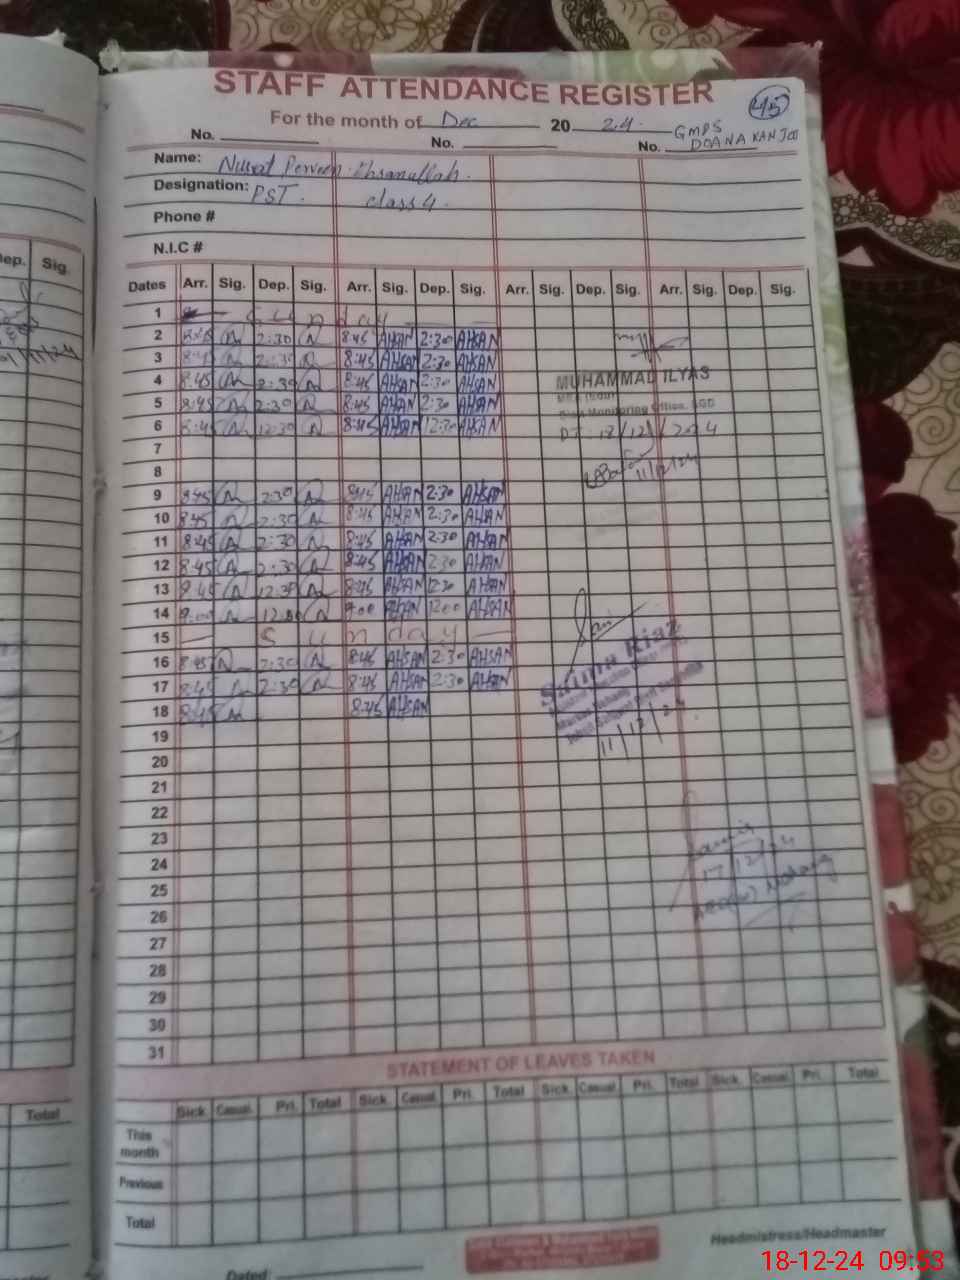 STAFF ATTENDANCE REGISTER
45
For the month of Dec 20 24
GMPS
No. No. No. DOANA KANJOO
Name: Nusrat Perveen Ehsanullah.
Designation: PST. class 4.
Phone #
N.I.C #
Dep. Sig.
Dates Arr. Sig. Dep. Sig. Arr. Sig. Dep. Sig. Arr. Sig. Dep. Sig. Arr. Sig. Dep. Sig.
1 Sunday
2 8:45 2:30 8:45 AHSAN 2:30 AHSAN
3 8:45 2:30 8:45 AHSAN 2:30 AHSAN
4 8:45 2:30 8:45 AHSAN 2:30 AHSAN
MUHAMMAD ILYAS
5 8:45 2:30 8:45 AHSAN 2:30 AHSAN
Monitoring Office, SGD
6 8:45 12:30 8:45 AHSAN 12:30 AHSAN
DT: 18/12/2024
7
8
11/12/24
9 8:45 2:30 8:45 AHSAN 2:30 AHSAN
10 8:45 2:30 8:45 AHSAN 2:30 AHSAN
11 8:45 2:30 8:45 AHSAN 2:30 AHSAN
12 8:45 2:30 8:45 AHSAN 2:30 AHSAN
13 8:45 12:30 8:45 AHSAN 12:30 AHSAN
14 9:00 12:00 9:00 AHSAN 12:00 AHSAN
15 Sunday
16 8:45 2:30 8:45 AHSAN 2:30 AHSAN
Saima Riaz
17 8:45 2:30 8:45 AHSAN 2:30 AHSAN
18 8:45 8:45 AHSAN
11/12/24
19
20
21
22
23
24
17/12/24
25
26
27
28
29
30
31
STATEMENT OF LEAVES TAKEN
Total
Sick. Casual. Pri. Total Sick. Casual. Pri. Total Sick. Casual. Pri. Total Sick. Casual. Pri. Total
This month
Previous
Total
Headmistress/Headmaster
Dated:
18-12-24 09:53